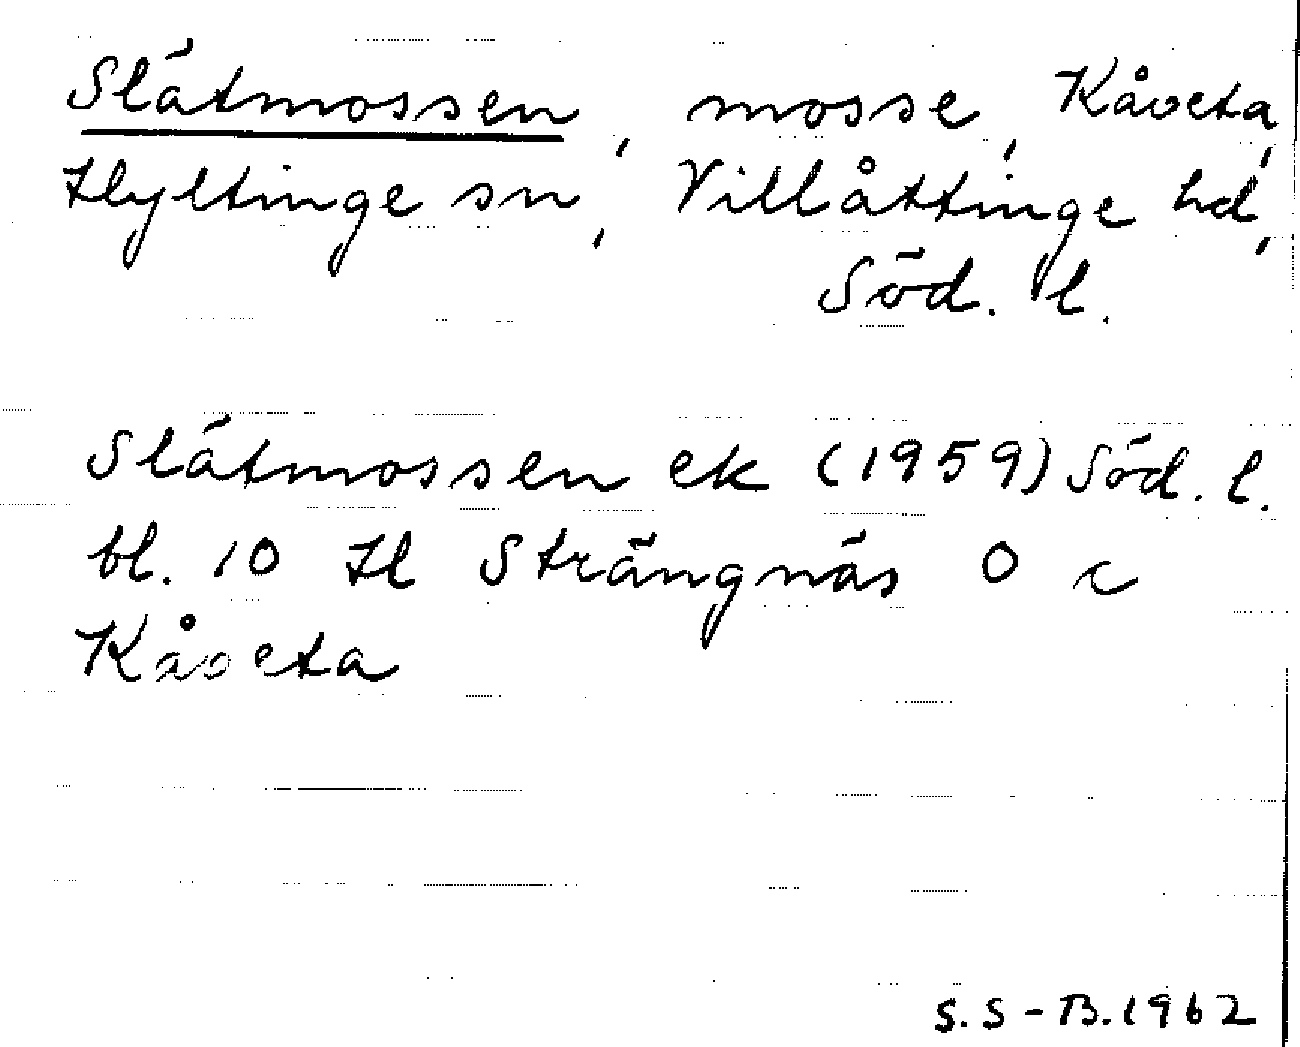 Slätmossen, mosse, Kåveta,
Hyltinge sn, Villåttinge hd,
Söd. l.
Slätmossen ek (1959) Söd. l.
bl. 10 H l Strängnäs O c
Kåveta
S. S-B. 1962